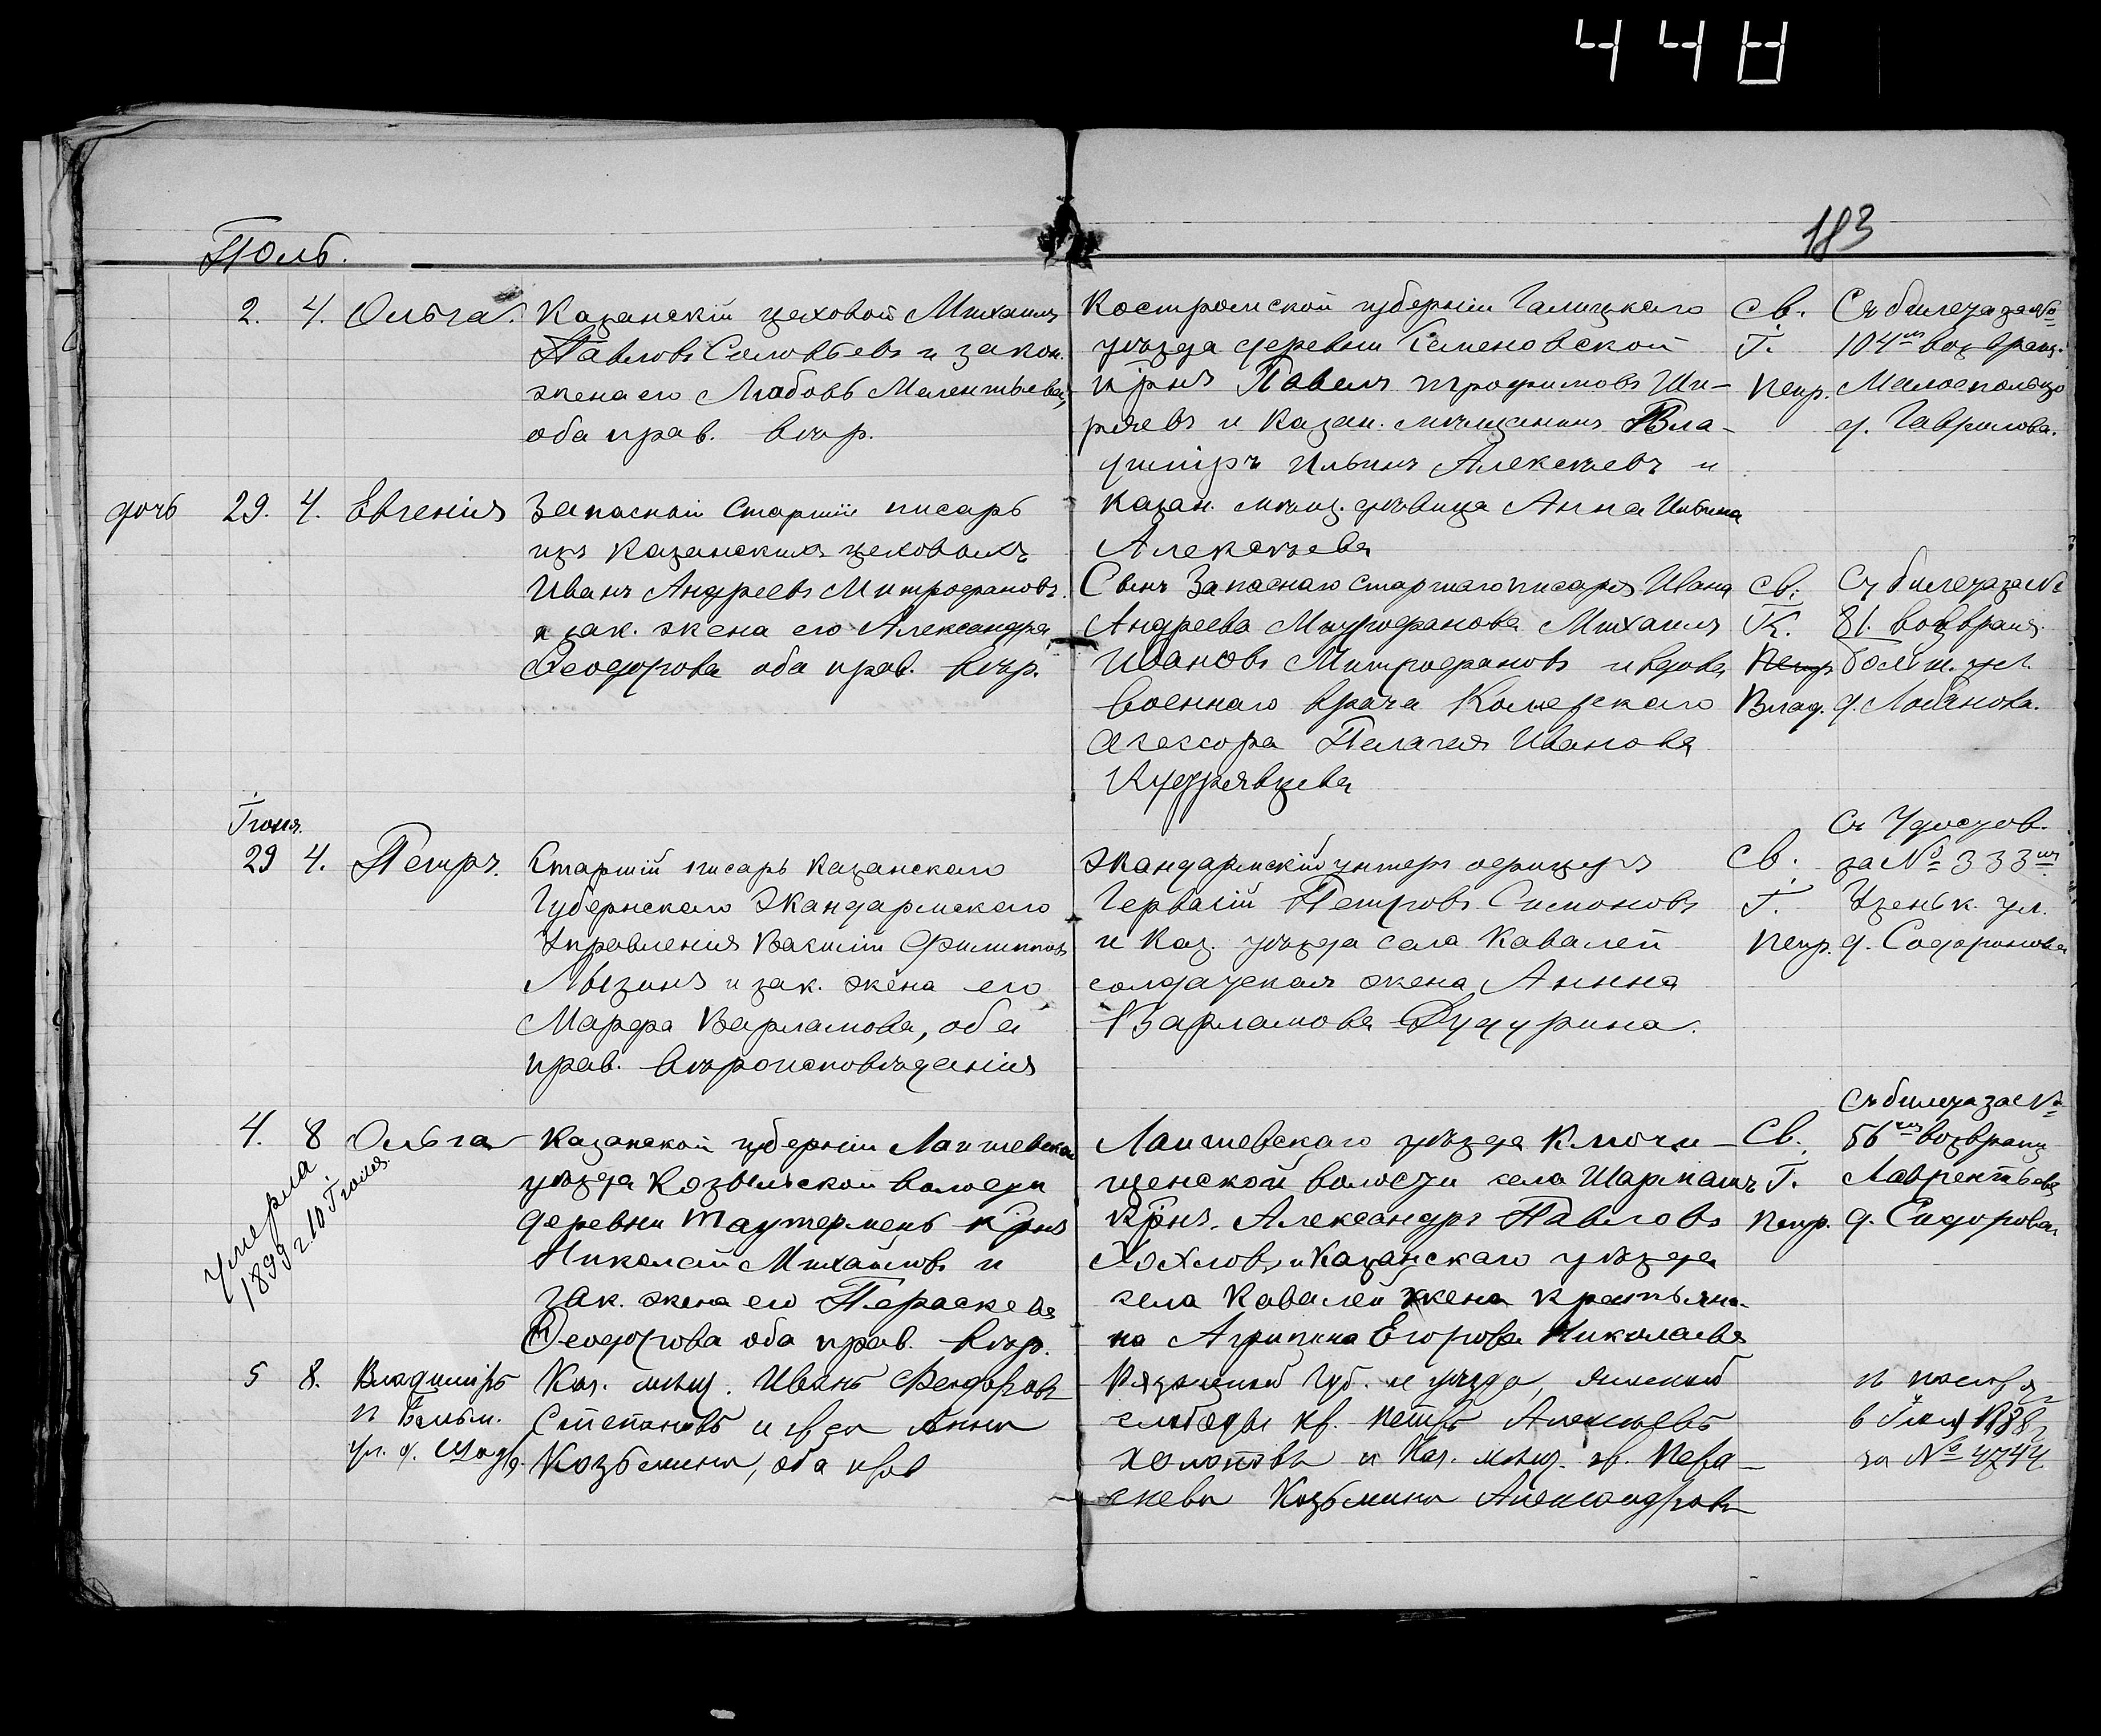 448
183
Іюль.
2. 4. Ольга.
Казанскій цеховой Михаилъ
Павловъ Соловьевъ и закон.
жена его Любовь Мелентьева,
оба прав. вѣр.
Костромской губерніи Галицкаго
уѣзда деревни Семеновской
кр̃нъ Павелъ Трофимовъ Ши-
ряевъ и Казан. мѣщанинъ Вла-
димиръ Ильинъ Алексѣевъ и
Казан. мѣщ. дѣвица Анна Ильина
Алексѣева
Св.
Г.
Петр.
Съ билета за №
104мъ возвращ.
д. Гаврилова.
дочь 29. 4. Евгенія
Запасной Старшій писарь
изъ Казанскихъ цеховыхъ
Иванъ Андреевъ Митрофановъ
и зак. жена его Александра
Ѳеодорова оба прав. вѣр.
Сынъ Запаснаго старшаго писаря Ивана
Андреева Митрофанова Михаилъ
Ивановъ Митрофановъ и вдова
военнаго врача Колежскаго
Асессора Пелагея Иванова
Кудрявцева
Св.
К.
Петр
Влад.
Съ билета за №
81. возвращ.
Больш. ул.
д. Лобанова.
Іюня.
29 4. Петръ.
Старшій писарь Казанскаго
Губернскаго Жандармскаго
Управленія Василій Филипповъ
Лызинъ и зак. жена его
Марфа Варламова, оба
прав. вѣроисповѣданія
Жандармскій унтеръ офицеръ
Гервасій Петровъ Симоновъ
и Каз. уѣзда села Кавалей
солдатская жена Анна
Варламова
Св.
Г.
Петр.
Съ Удостов.
за № 333мъ
ул.
д. Софронова
4. 8 Ольга
умерла
1899 г. 10 Іюля.
Казанской губерніи Лаишевскаго
уѣзда Козыльской волости
деревни Таутермень кр̃нъ
Николай Михайловъ и
зак. жена его Параскева
Ѳеодорова оба прав. вѣр.
Лаишевскаго уѣзда Ключи-
щенской волости села Шармашъ
кр̃нъ Александръ Павловъ
Хохловъ и Казанскаго уѣзда
села Кавалей жена крестьяни-
на Агрипина Егорова Николаева
Св.
Г.
Петр.
Съ билета за №
56мъ возвращ
Лаврентьева
д. Сидорова
5 8. Владимиръ
Каз. мѣщ. Иванъ Феодоровъ
Степановъ и Анна
Козьмина, оба прав
Рязанской Губ. и уѣзда, Ямской
слободы кр. Петръ Алексѣевъ
и Каз. мѣщ. Пара-
скева Козьмина Александрова
за № 4744